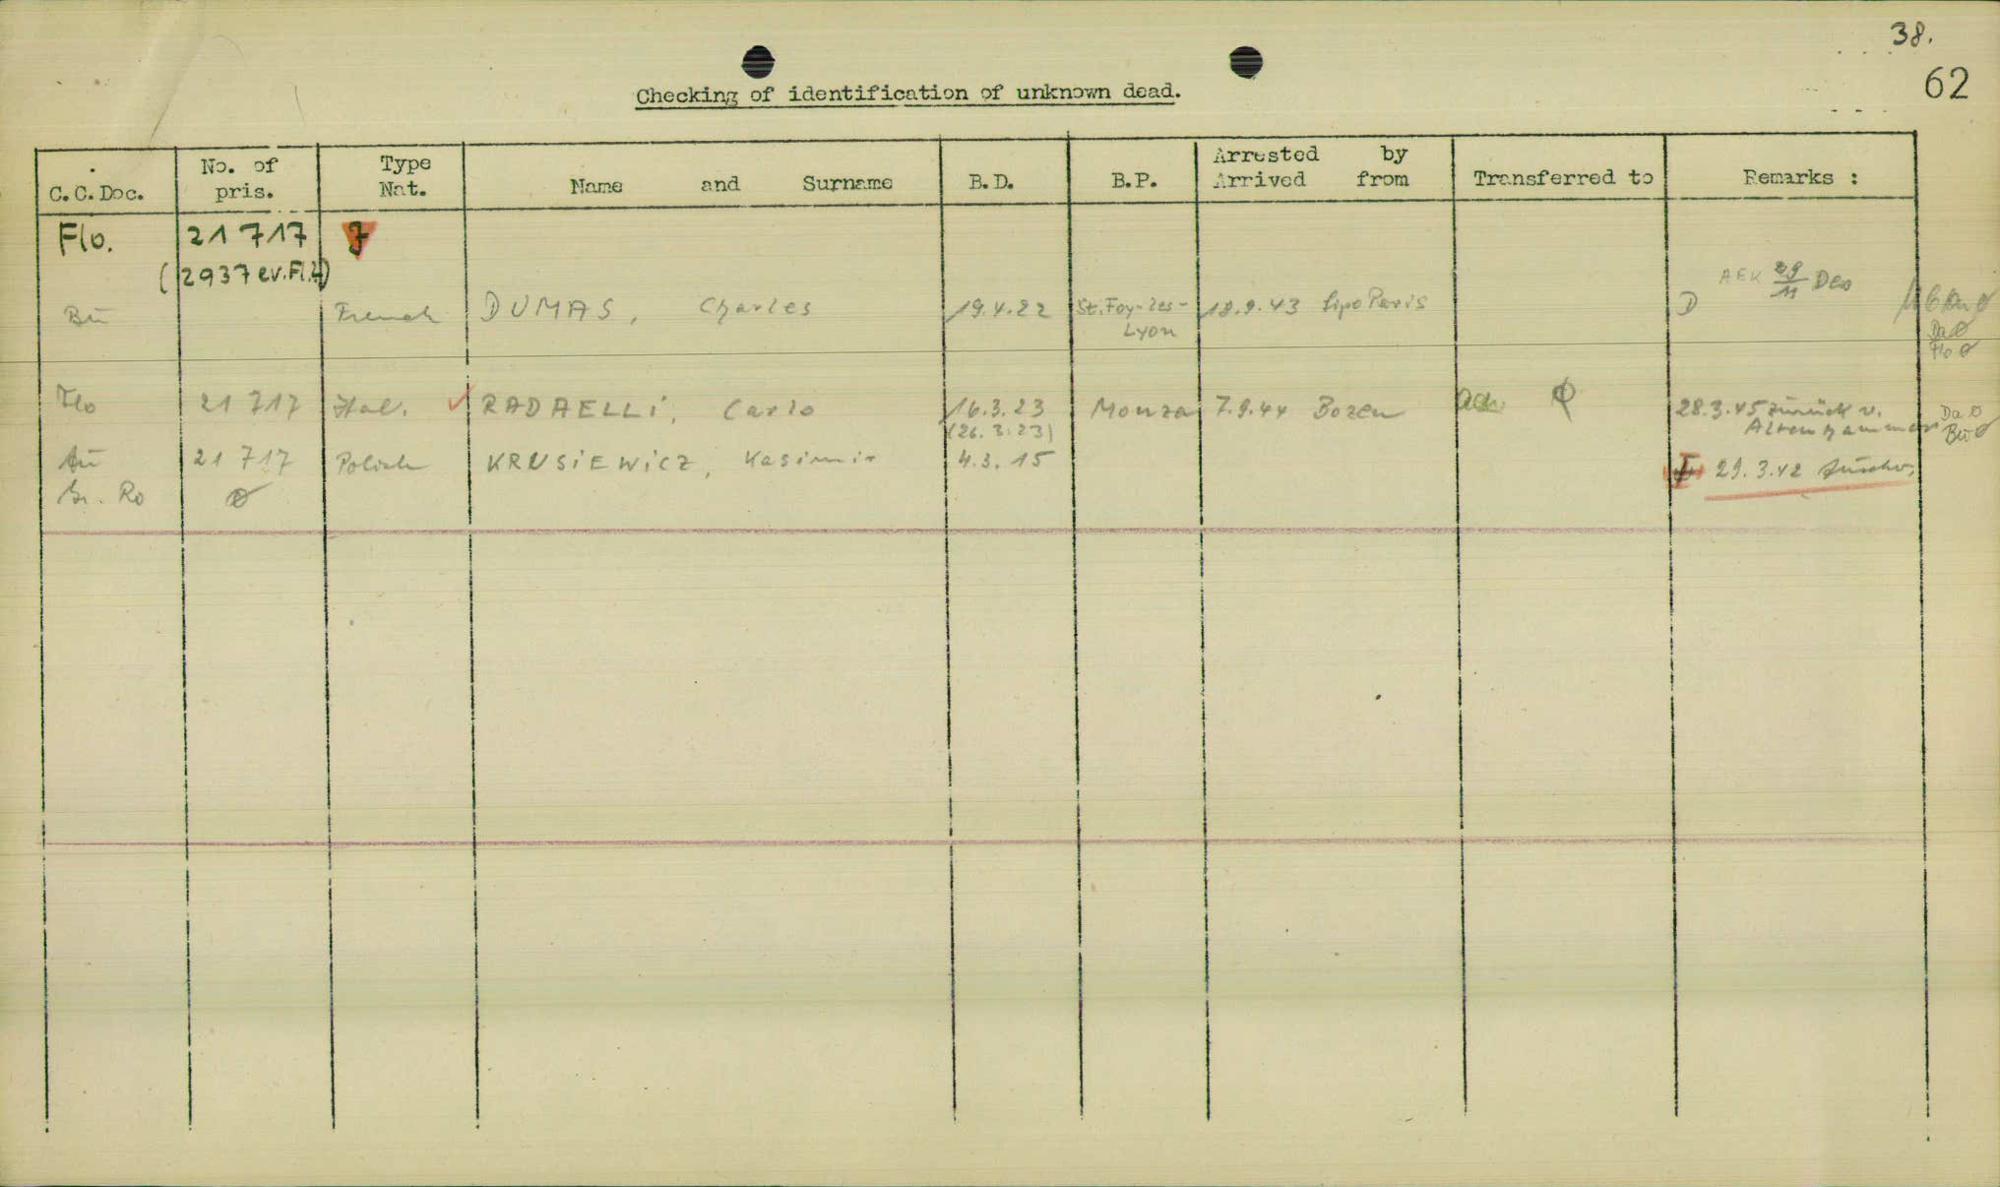 38.
62
Checking of identification of unknown dead.
C.C.Doc. No. of pris. Type Nat. Name and Surname B.D. B.P. Arrested by Arrived from Transferred to Remarks :
Flo. 21 717
(2937 ev.
AEK 29/11
Bu French DUMAS, Charles 19.4.22 St.Foy-les- 18.9.43 Sipo Paris D
Lyon
Da Ø
Flo Ø
Flo 21 717 Ital. ✓ RADAELLi, Carlo 16.3.23 Monza 7.9.44 Bozen 28.3.45 zurück v. Da Ø
(26.3.23) Altenhammer Bu Ø
Au 21 717 Polish KRUSiEWiCZ, Kasimir 4.3.15 29.3.42
Gr. Ro Ø